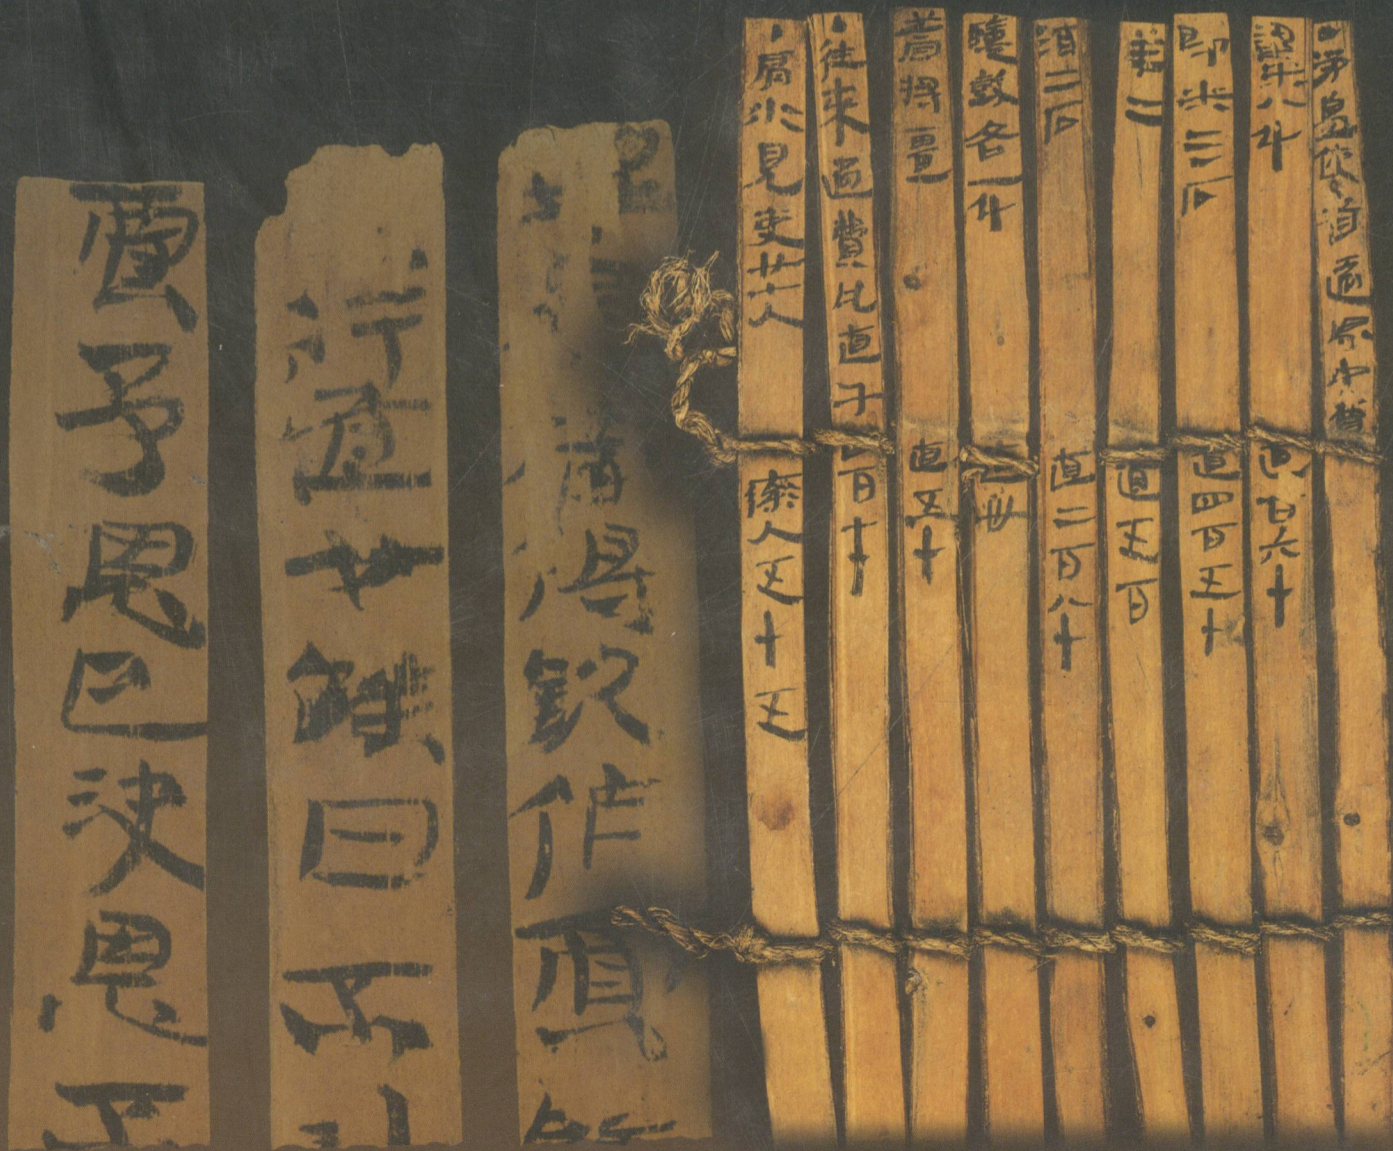 ●勞邊使者過界中費
粱米八斗 直百六十
即米三石 直四百五十
羊二 直五百
酒二石 直二百八十
鹽豉各一斗 直卅
薺將畺 直五十
●往來過費凡直千四百七十
●肩水見吏廿七人 率人五十五
得欽作賈
行道廿餘日不
賈予恩已決恩不